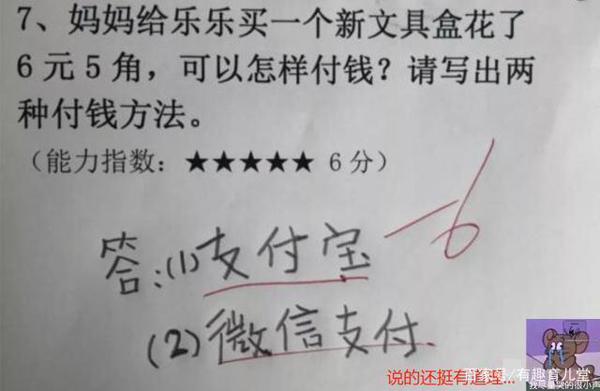 7、妈妈给乐乐买一个新文具盒花了
6元5角，可以怎样付钱？请写出两
种付钱方法。
（能力指数：★★★★★ 6分）
答：(1)支付宝 -6
(2)微信支付.
说的还挺有道理...
百家号/有趣育儿堂
我尽量哭的很小声